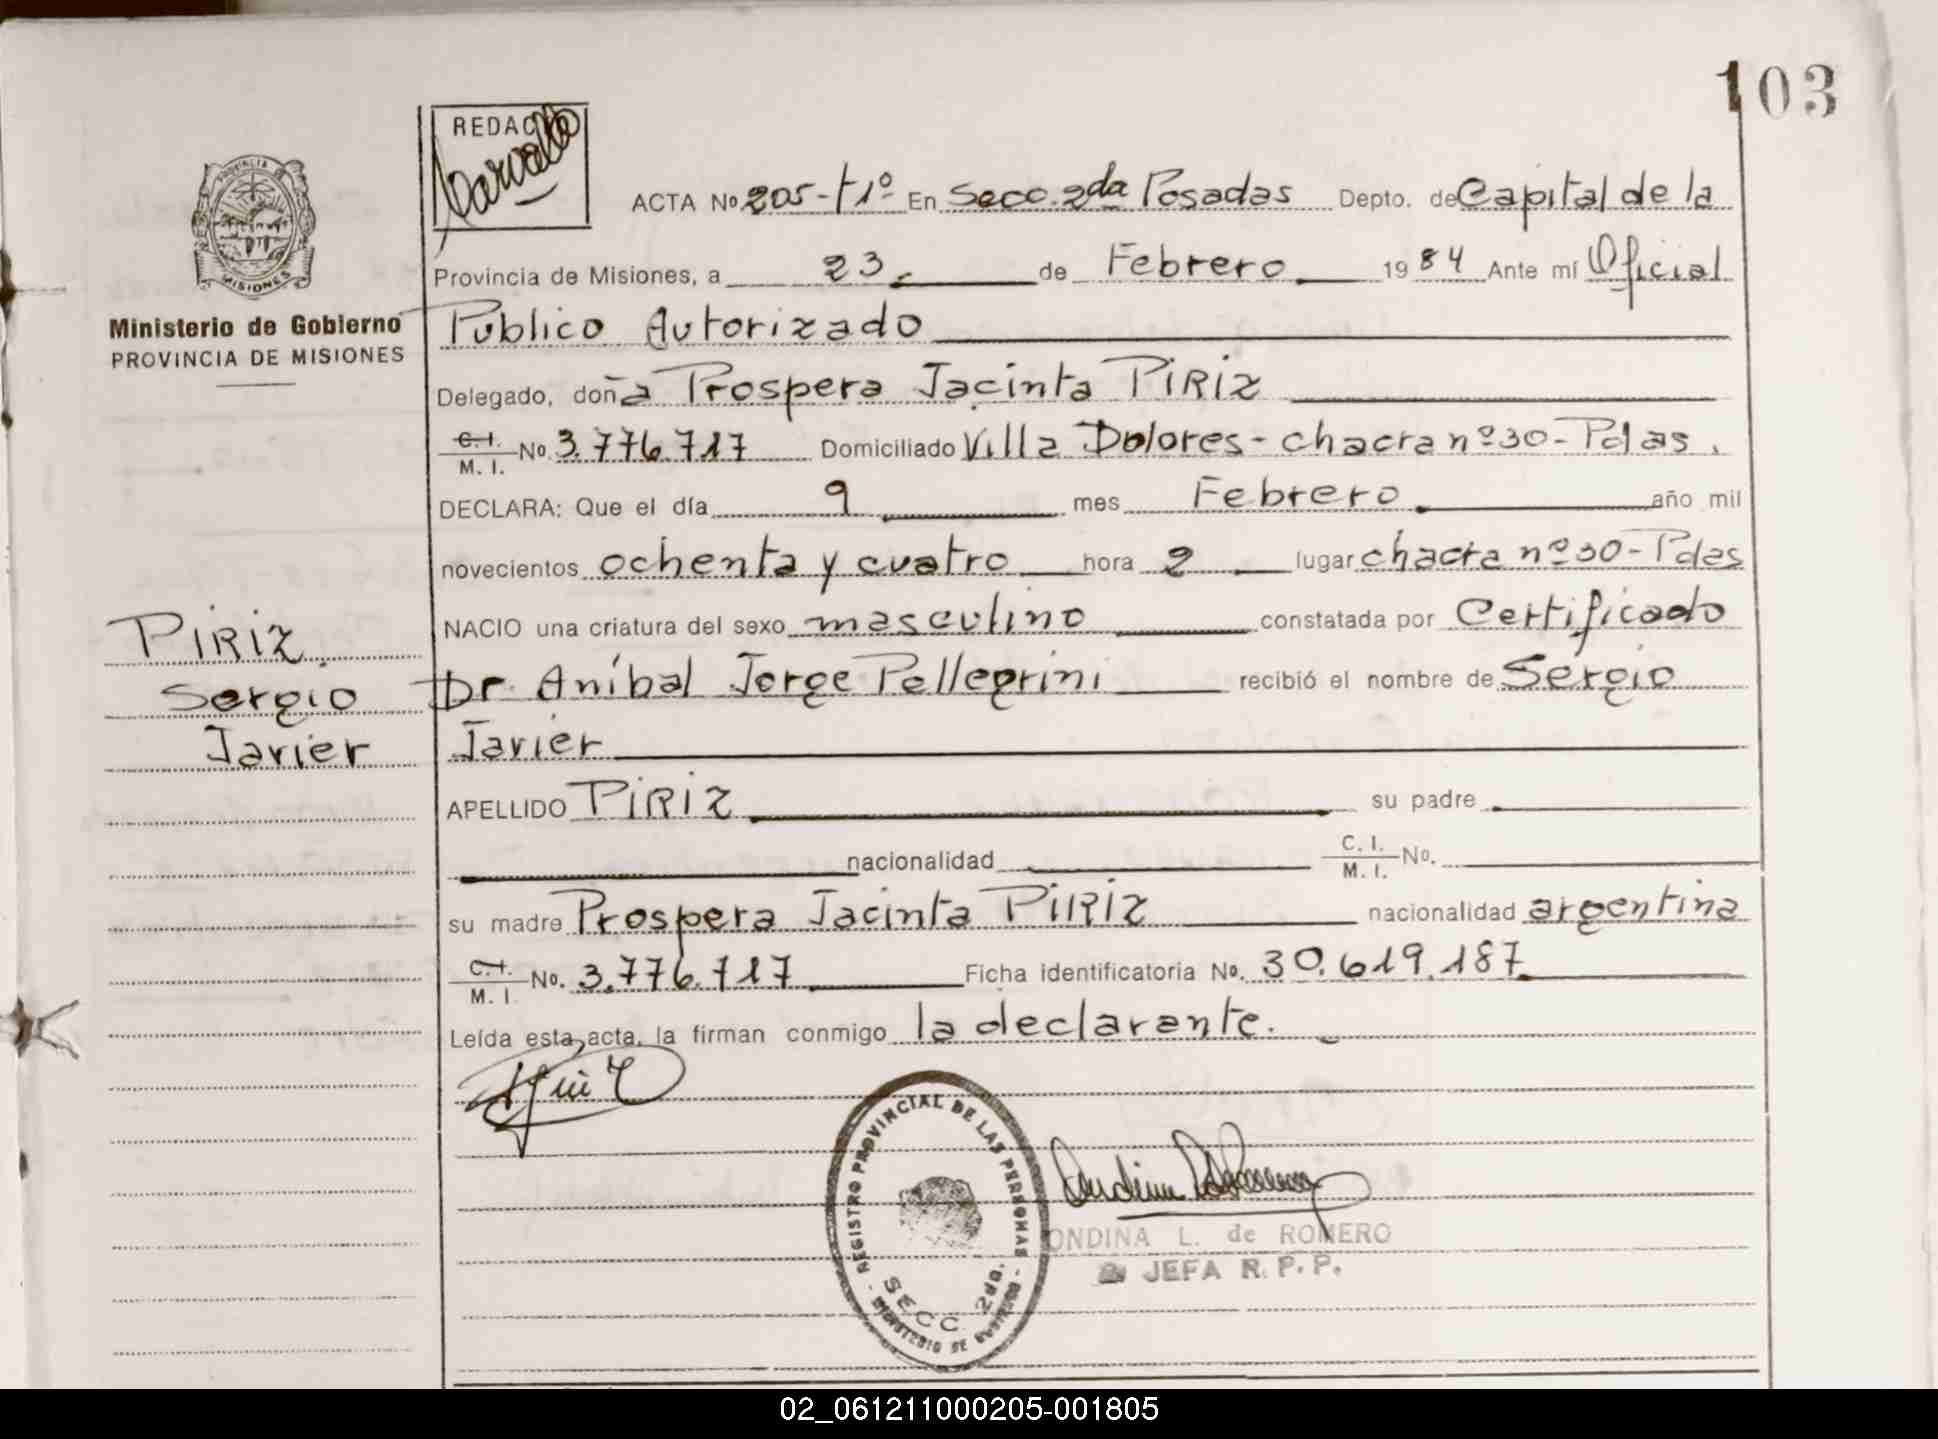 103
REDAC
Carvallo
ACTA No 205-t1º En Secc. 2da Posadas Depto. de Capital de la
PROVINCIA
MISIONES
Provincia de Misiones, a 23. de Febrero 1984 Ante mí Oficial
Ministerio de Gobierno
PROVINCIA DE MISIONES
Publico Autorizado
Delegado, doña Prospera Jacinta PIRIZ
C. I. M. I. No. 3.776.717 Domiciliado Villa Dolores - chacra nº 30 - Pdas.
DECLARA: Que el día 9 mes Febrero año mil
novecientos ochenta y cuatro hora 2 lugar chacra nº 30 - Pdas
NACIO una criatura del sexo masculino constatada por Certificado
Dr. Aníbal Jorge Pellegrini recibió el nombre de Sergio
Javier
PIRIZ
Sergio
Javier
APELLIDO PIRIZ su padre
nacionalidad C. I. M. I. No.
su madre Prospera Jacinta PIRIZ nacionalidad argentina
C. I. M. I. No. 3.776.717 Ficha identificatoria No. 30.619.187
Leída esta acta, la firman conmigo la declarante.
REGISTRO PROVINCIAL DE LAS PERSONAS
SECC. 2da.
MINISTERIO DE GOBIERNO
ONDINA L. de ROMERO
JEFA R. P. P.
02_061211000205-001805